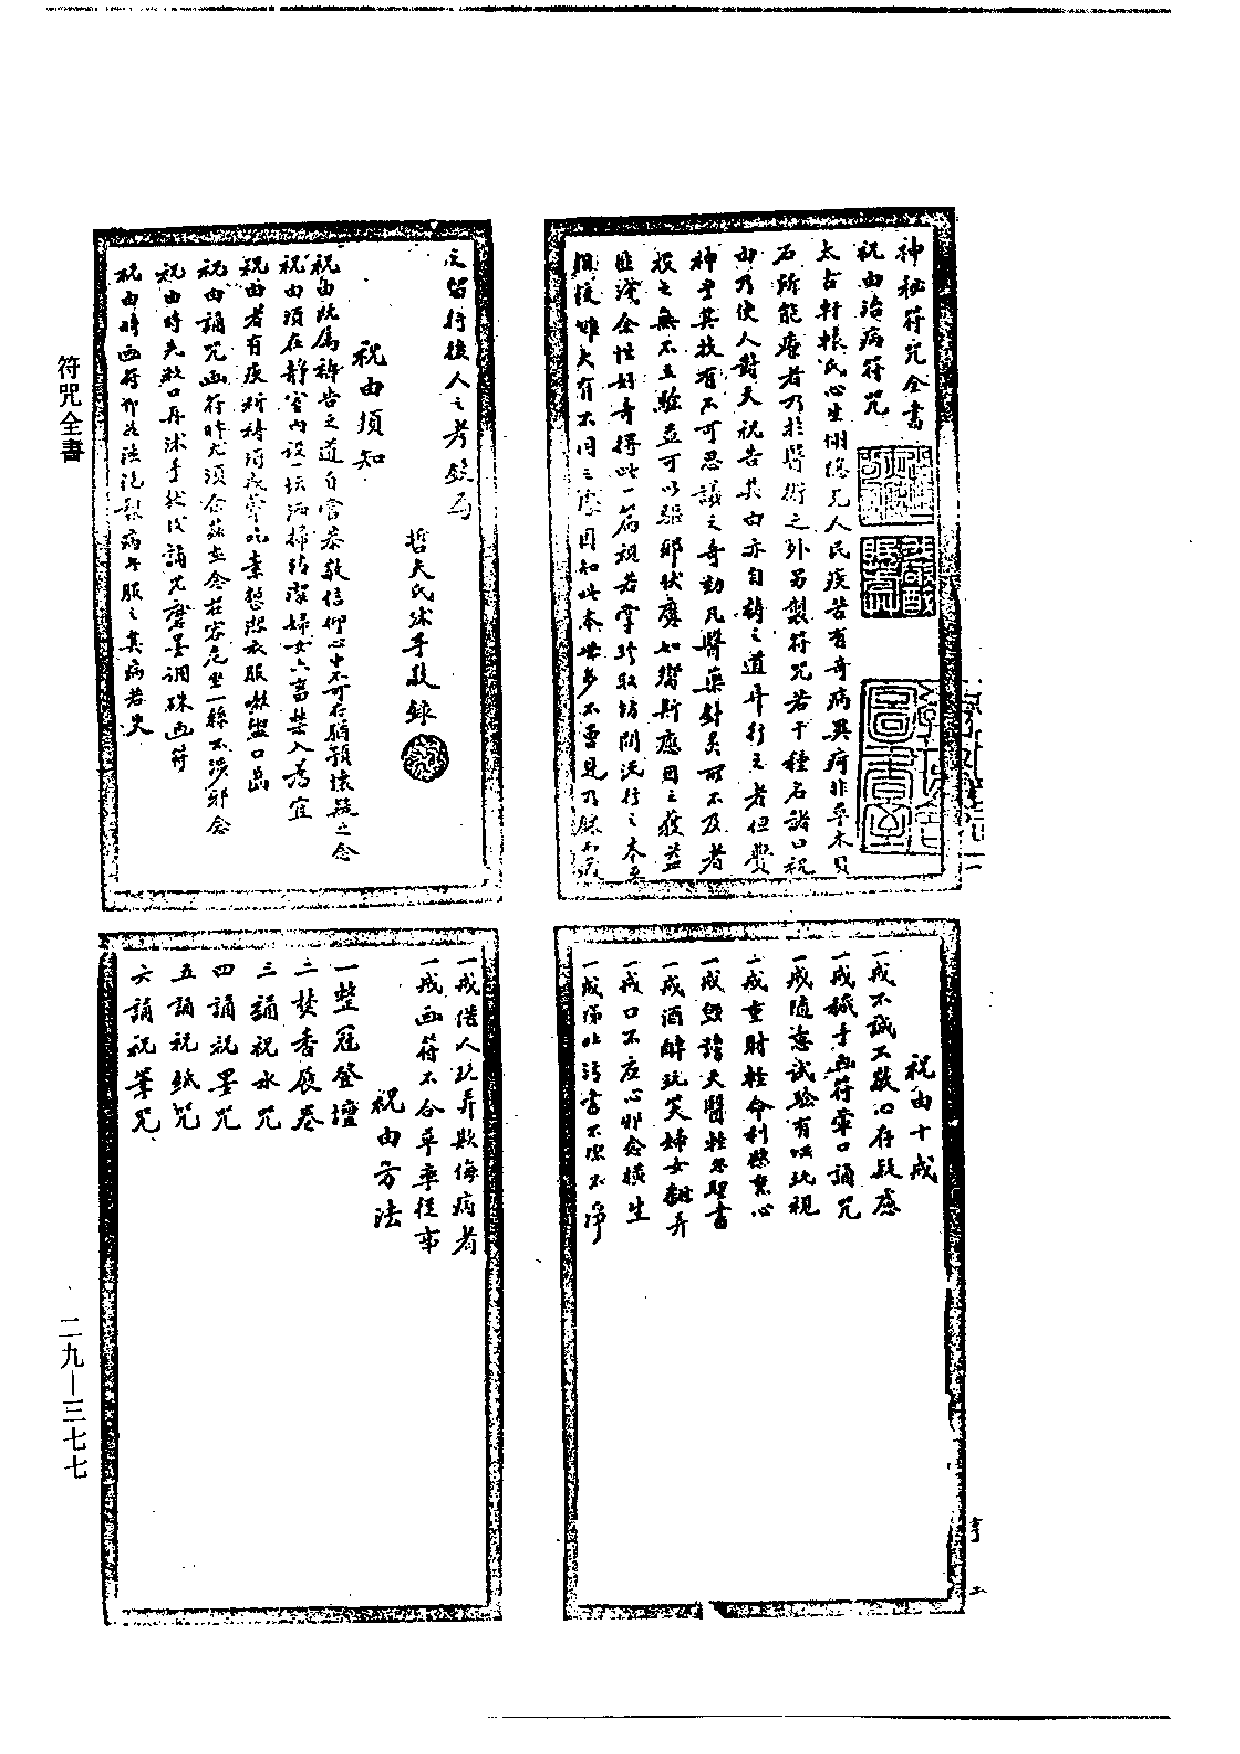 神秘符咒全書
祝由治病符咒
太古軒轅氏心生惻隱見人民疾苦有奇病異疴非草木貝
石所能療者乃於醫術之外另製符咒若干種名諸曰祝
由乃使人對天祝告其由亦自禱之道耳行之者但費
神耳其技有不可思議之奇効凡醫藥針灸所不及者
投之無不立驗並可以驅邪伏魔如響斯應因之獲益
匪淺余性好奇得此一篇視若掌珍取坊間流行之本
大有不同之處因知此本世多不要見乃錄
之留待後人之考證焉
哲夫氏沐手敬錄
祝由須知
祝由既屬禱告之道自當恭敬信仰心中不可存猶預懷疑之念
祝由須在靜室內設一坛洒掃清潔婦女六畜禁入為宜
祝由者有疾祈禱須戒葷吃素整潔衣服漱盥口齒
祝由誦咒画符時尤須念茲在茲莊容危坐一絲不涉邪念
祝由時先漱口再沐手然後誦咒磨墨調硃画符
祝由時画符即如法治疑病者服之其病若失
祝由十戒
一戒不誠不敬心存疑惑
一戒穢手画符葷口誦咒
一戒隨意試驗有似玩視
一戒重財輕命利慾熏心
一戒毀謗天醫輕忽聖書
一戒酒醉玩笑婦女翻弄
一戒口不应心邪念橫生
一戒諸書不潔不淨
一戒借人玩弄欺侮病者
一戒画符不合草率從事
祝由方法
一整冠登壇
二焚香展卷
三誦祝水咒
四誦祝墨咒
五誦祝紙咒
六誦祝筆咒
符咒全書
二九—三七七